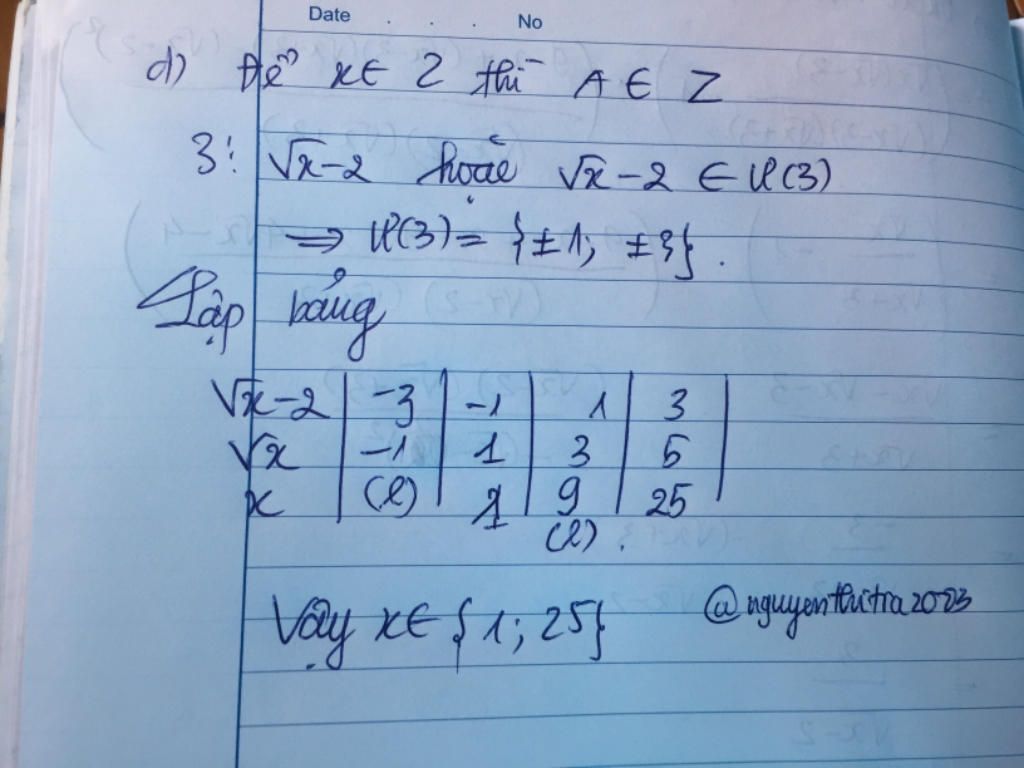 Date . . . No
d) Để x ∈ Z thì A ∈ Z
3 ⋮ √x-2 hoặc √x-2 ∈ Ư(3)
⟹ Ư(3) = {±1; ±3}.
Lập bảng
√x-2 | -3 | -1 | 1 | 3 |
√x | -1 | 1 | 3 | 5 |
x | (l) | 1 | 9 | 25 |
(l).
Vậy x ∈ {1; 25}
@nguyenthitra2023